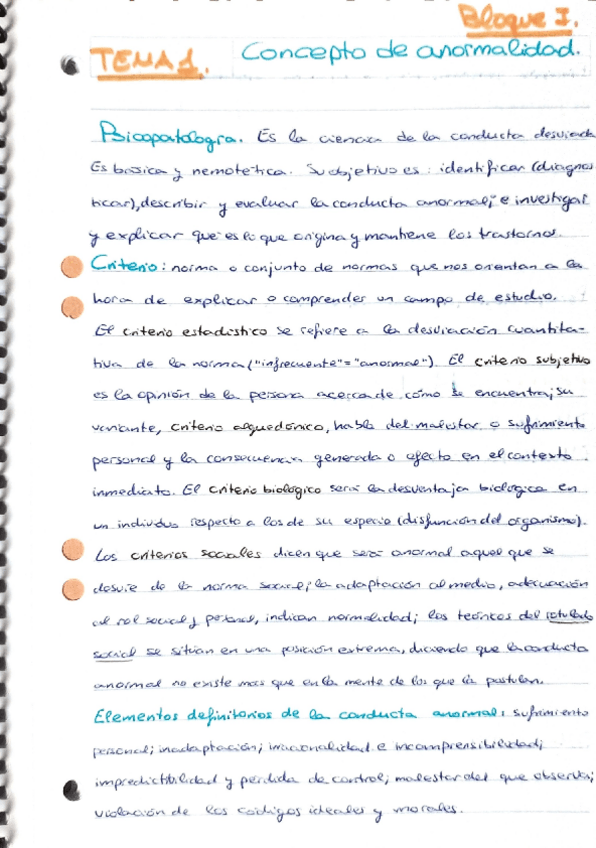 Bloque I.
TEMA 1. Concepto de anormalidad.
Psicopatología. Es la ciencia de la conducta desviada
Es básica y nemotética. Su objetivo es: identificar (diagnos
ticar), describir y evaluar la conducta anormal; e investigar
y explicar que es lo que origina y mantiene los trastornos.
Criterio: norma o conjunto de normas que nos orientan a la
hora de explicar o comprender un campo de estudio.
El criterio estadístico se refiere a la desviación cuantita-
tiva de la norma ("infrecuente"="anormal"). El criterio subjetivo
es la opinión de la persona acerca de cómo se encuentra; su
variante, criterio alguedónico, habla del malestar o sufrimiento
personal y la consecuencia generada o efecto en el contexto
inmediato. El criterio biológico será la desventaja biológica en
un individuo respecto a los de su especie (disfunción del organismo).
Los criterios sociales dicen que será anormal aquel que se
desvíe de la norma social; la adaptación al medio, adecuación
al rol social y personal, indican normalidad; los teóricos del rotulado
social se sitúan en una posición extrema, diciendo que la conducta
anormal no existe mas que en la mente de los que la postulan.
Elementos definitorios de la conducta anormal: sufrimiento
personal; inadaptación; irracionalidad e incomprensibilidad;
impredictibilidad y pérdida de control; malestar del que observa;
violación de los códigos ideales y morales.